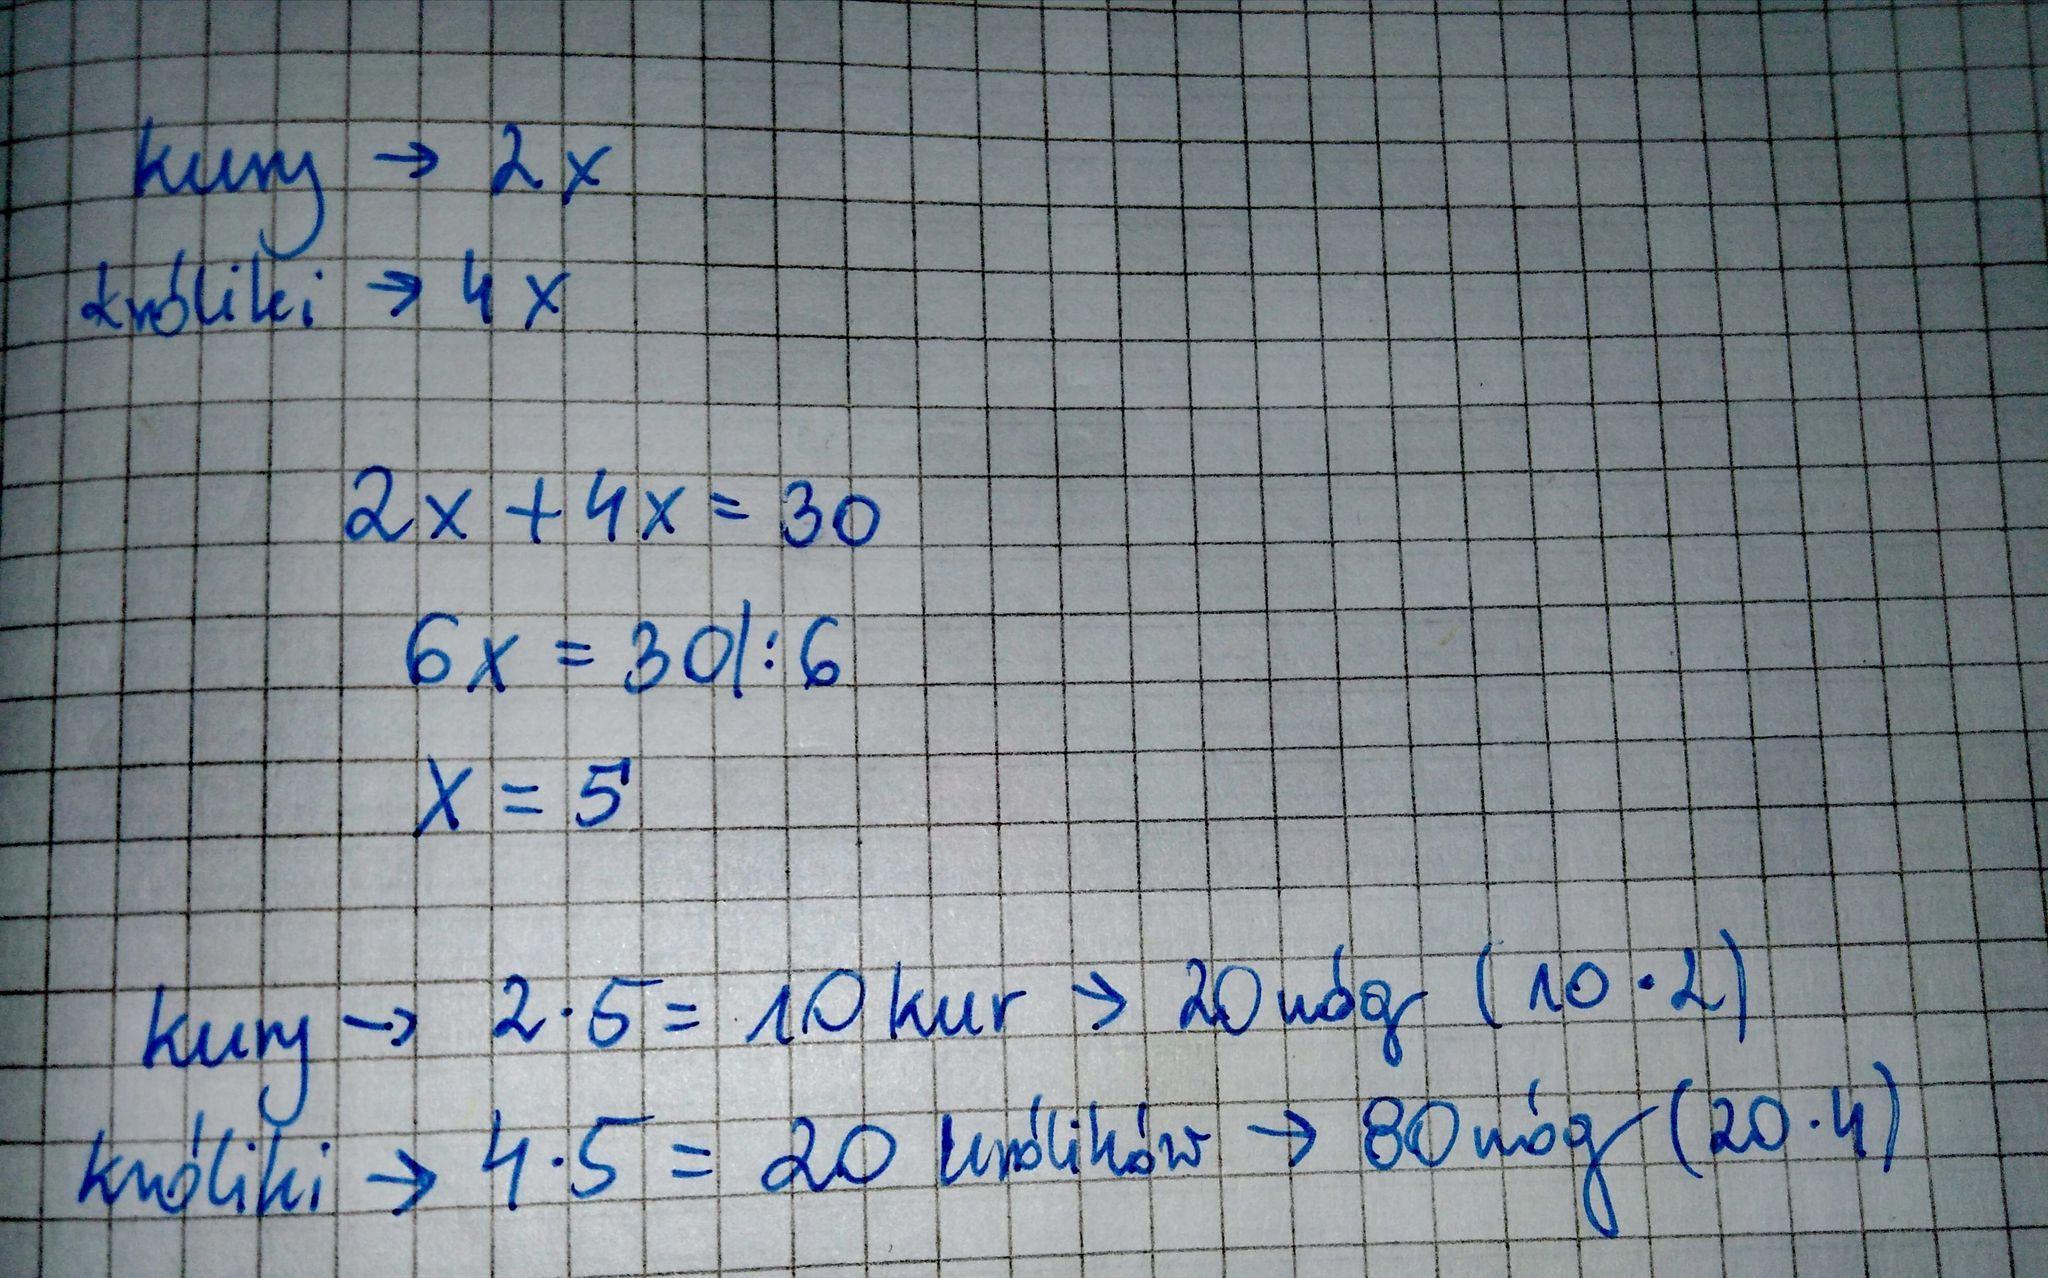 kury → 2x
króliki → 4x
2x + 4x = 30
6x = 30/:6
x = 5
kury → 2·5 = 10 kur → 20 nóg (10·2)
króliki → 4·5 = 20 królików → 80 nóg (20·4)